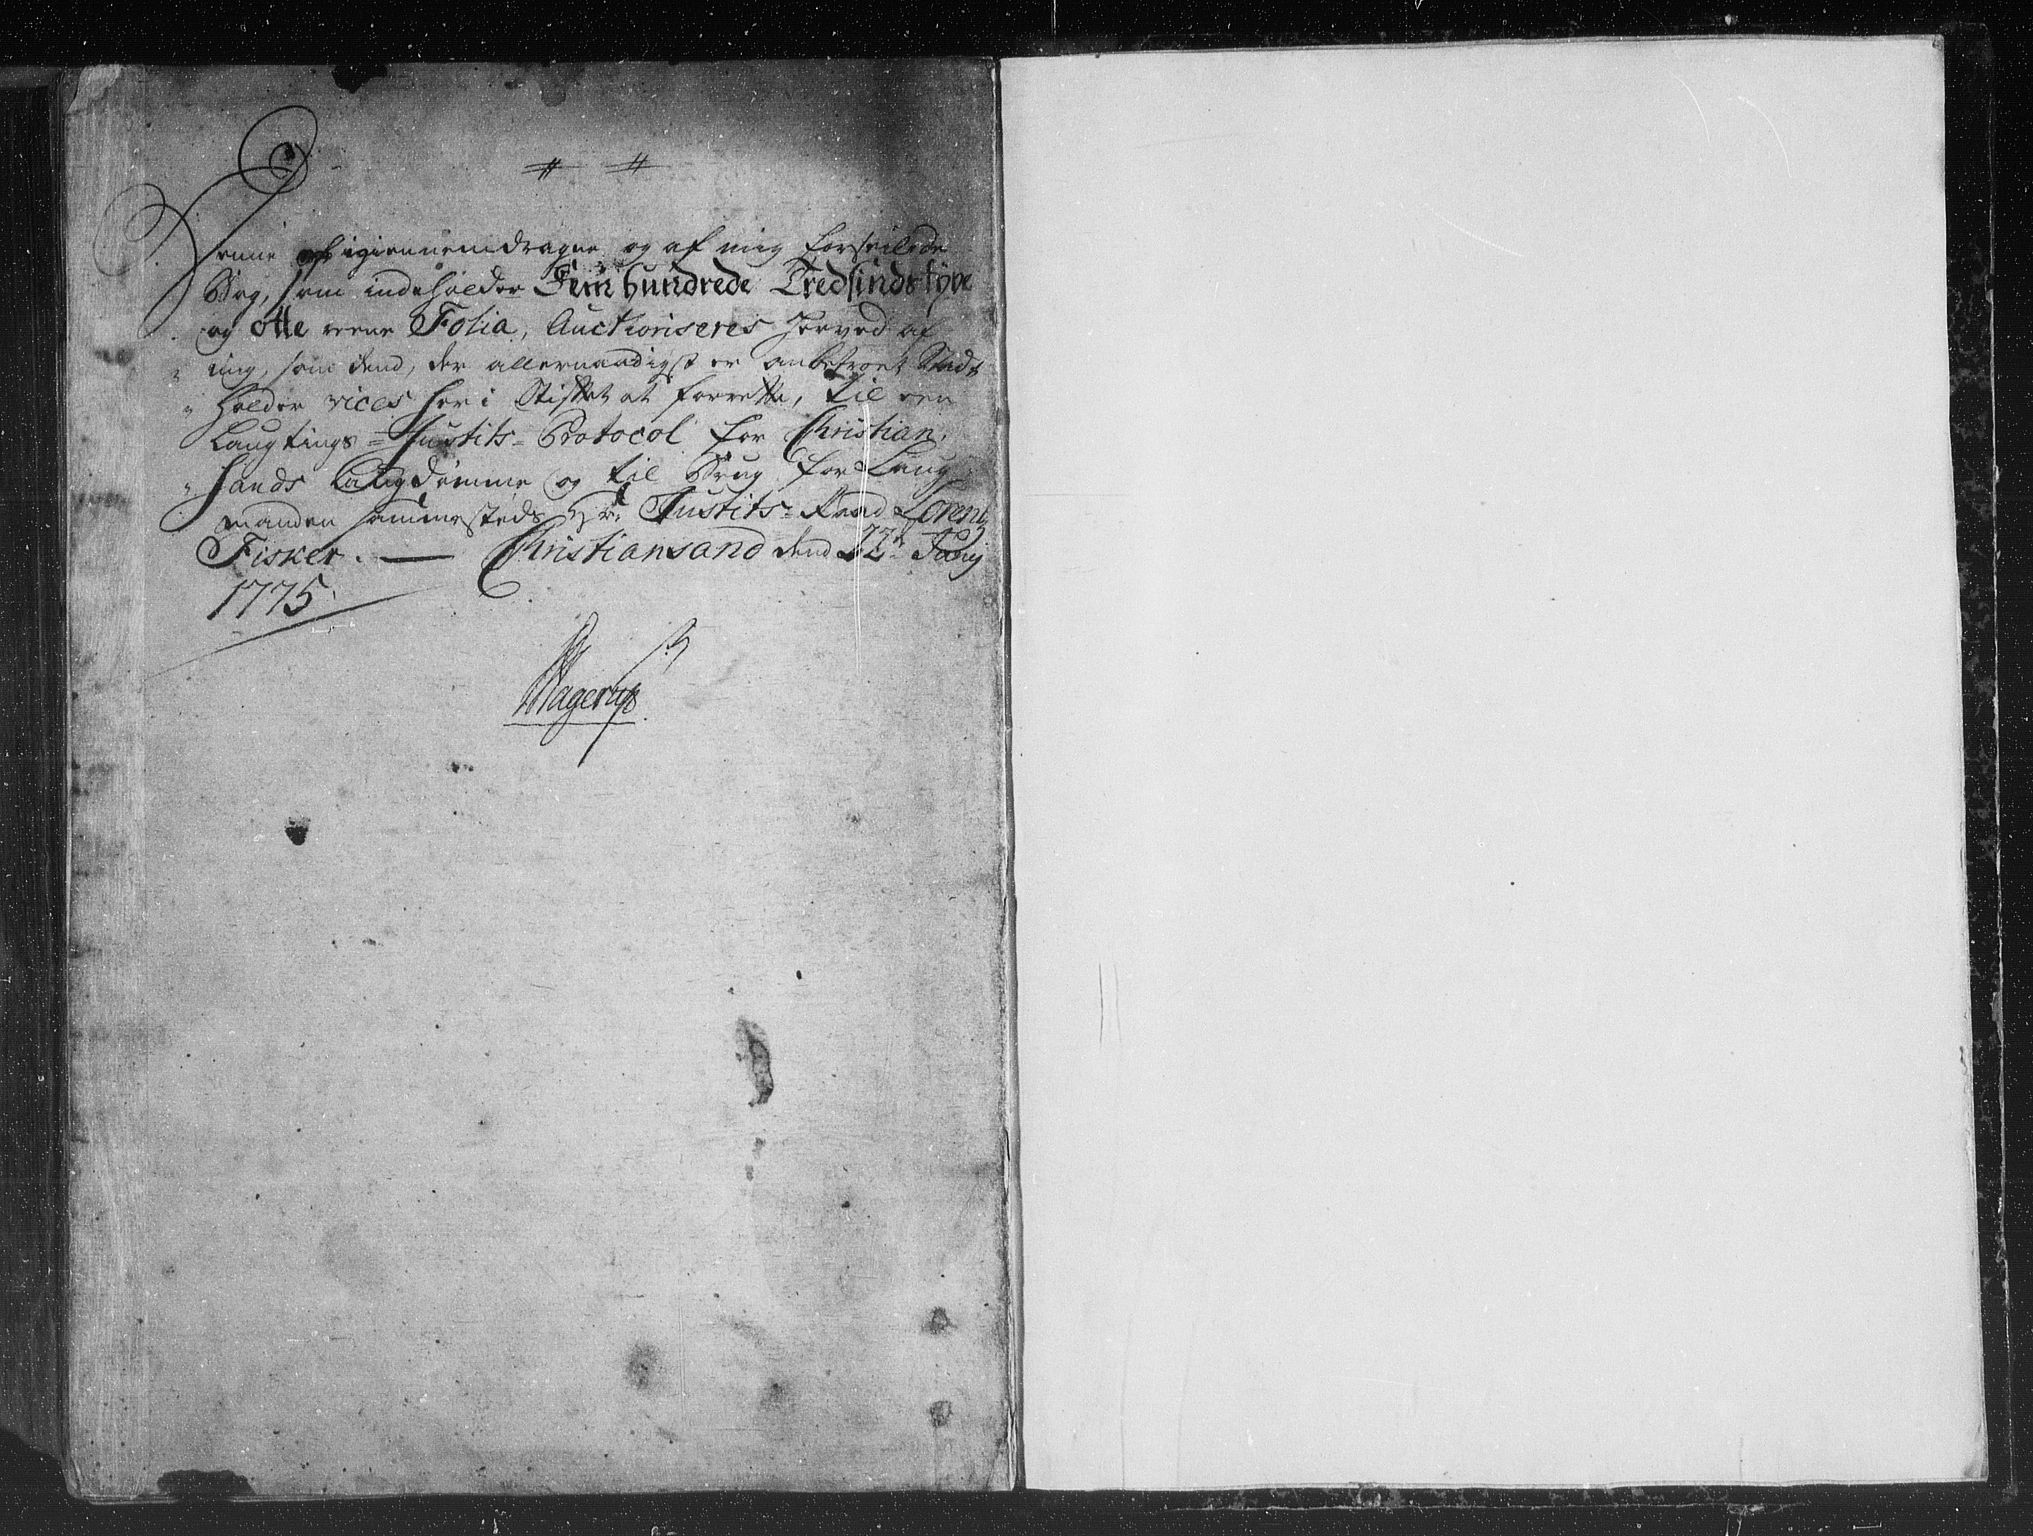 Denne igiennemdragne og af mig forseilede
Bog, som indeholder Fem hundrede Tredsindstÿve
og otte reene Folia, Auchoriseres herved af
mig, som dend, der allernaadigst er anbetroet Stadt
holder vices her i Stiftet at forrette, til een
Laugtings-Justits-Protocol for Christian-
sands Laugdømme og til Brug for Laug
manden sammesteds Hr: Justits-Raad Lorentz
Fisker. — Christiansand dend 22de Junij
1775.
Hagerup